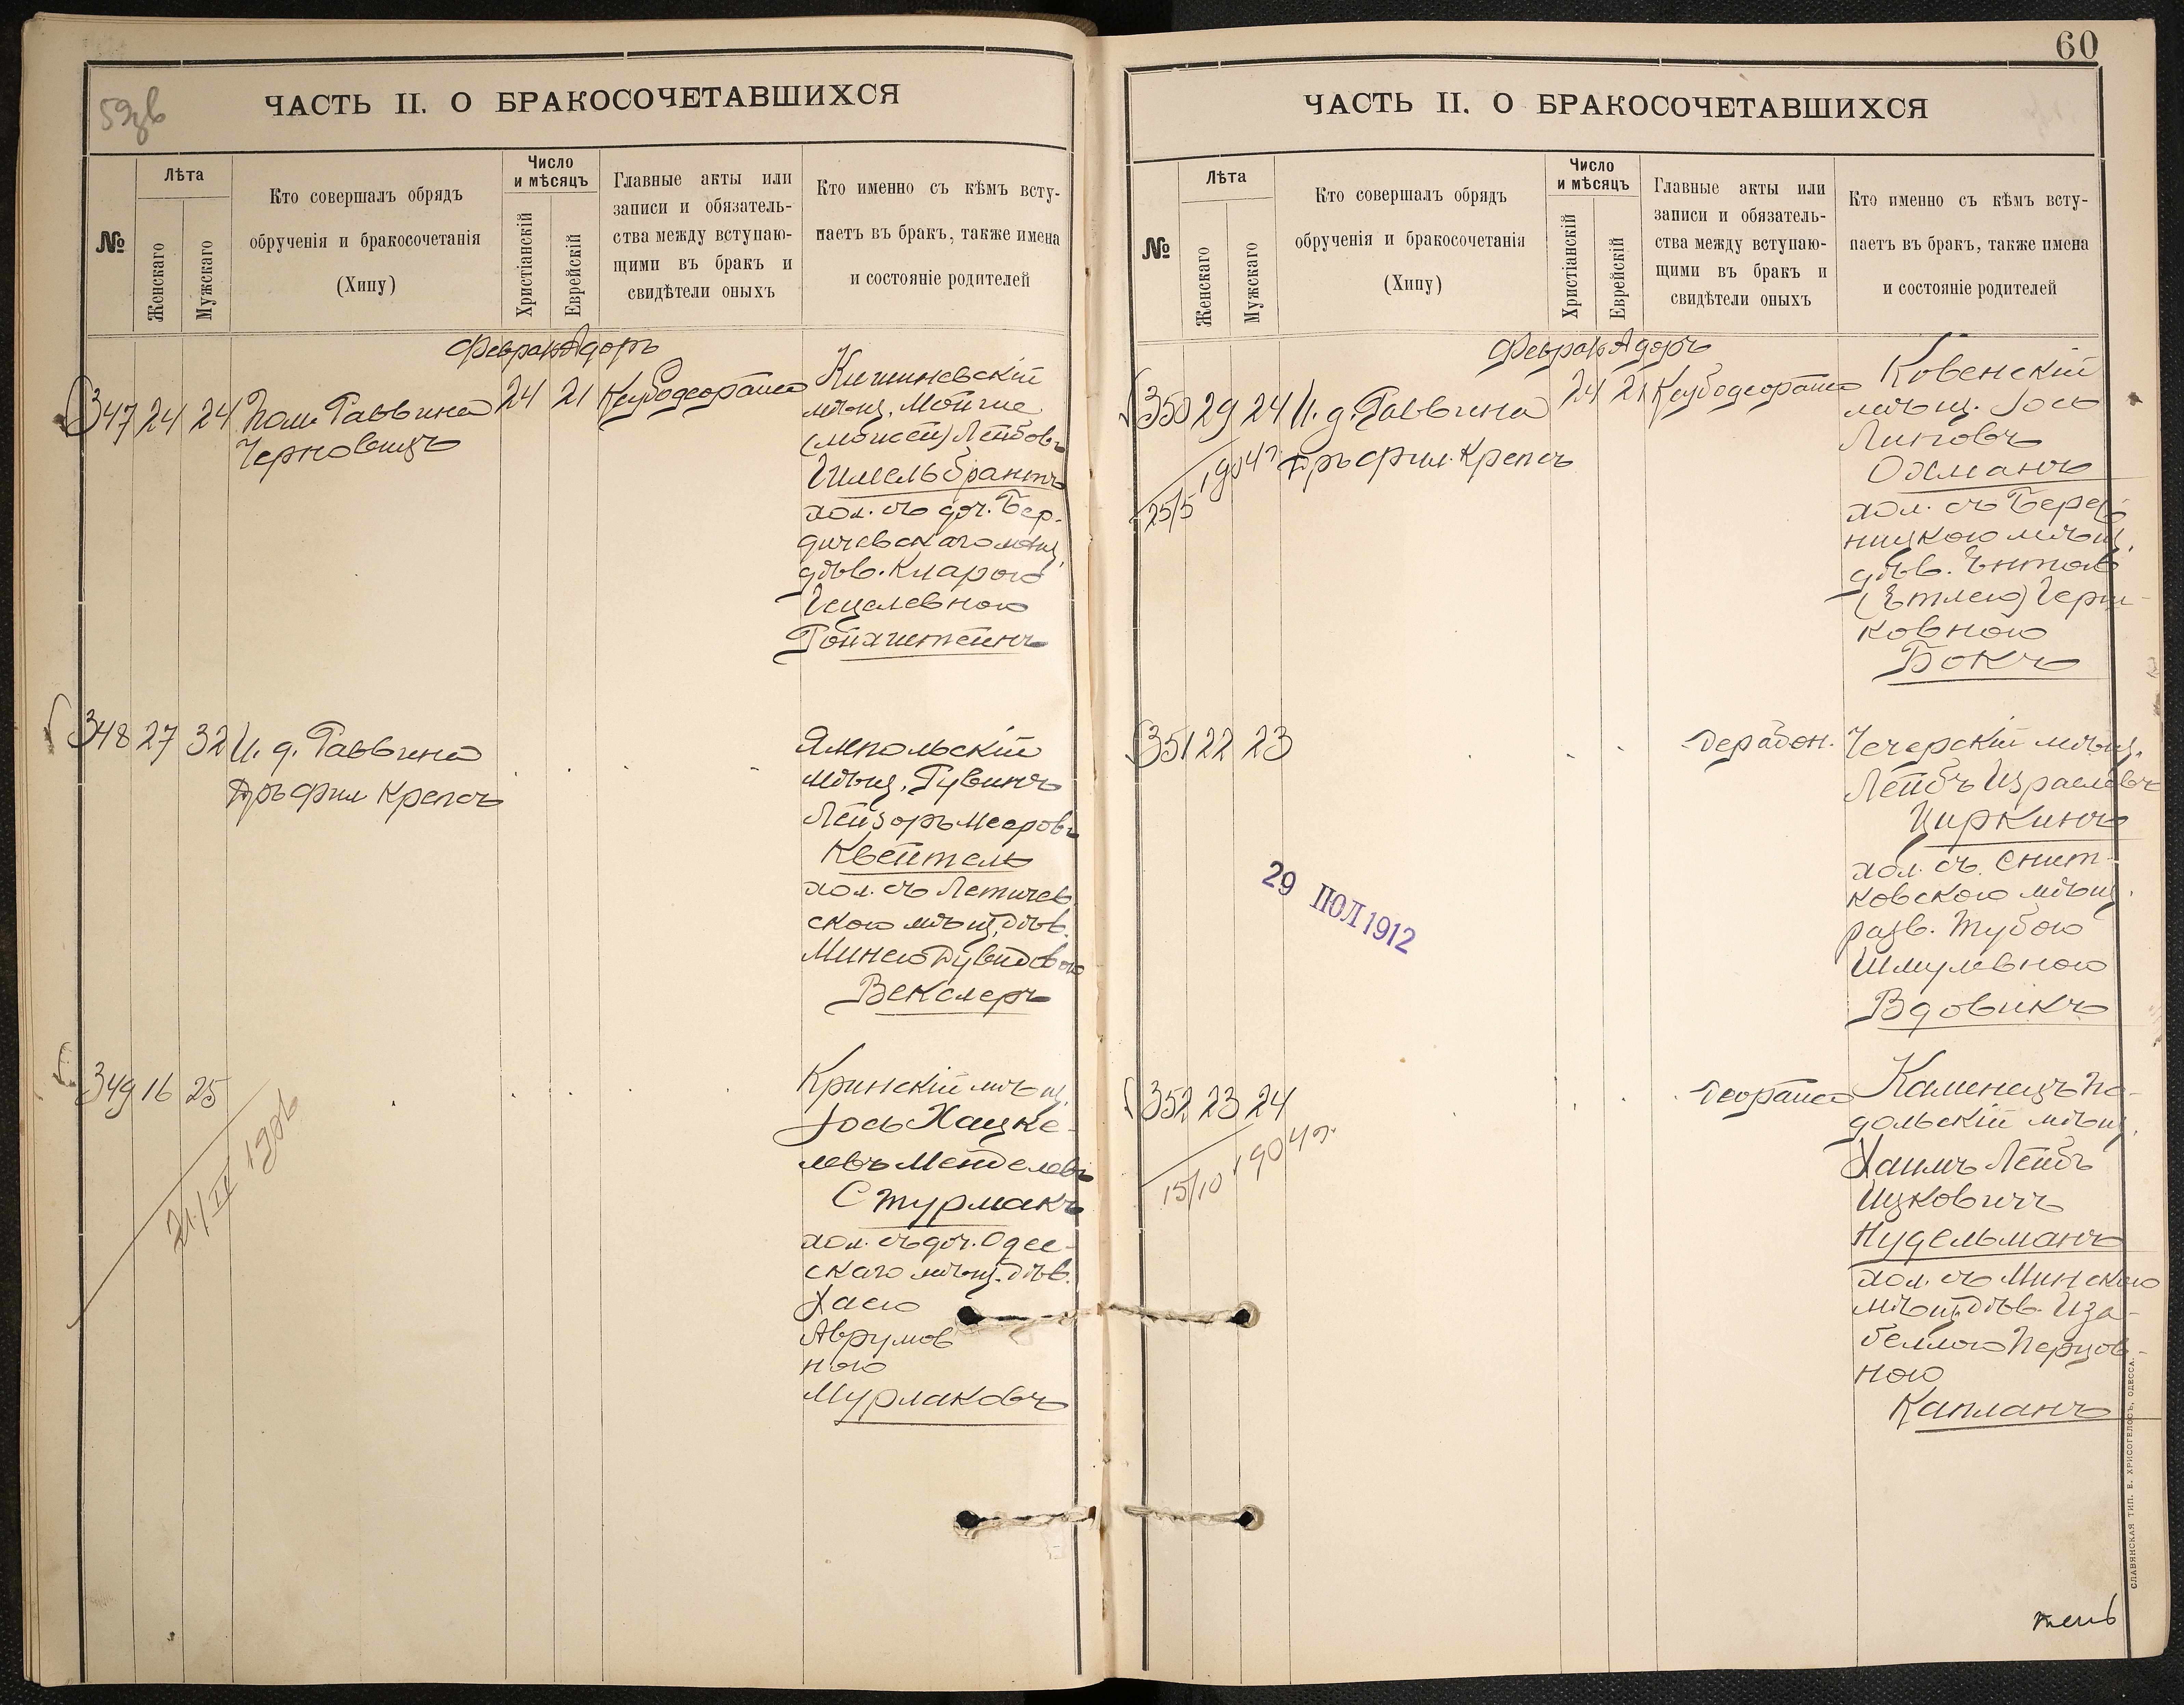 59об
ЧАСТЬ II. О БРАКОСОЧЕТАВШИХСЯ
№
Лѣта
Женскаго
Мужскаго
Кто совершалъ обрядъ
обрученія и бракосочетанія
(Хипу)
Число
и мѣсяцъ
Христіанскій
Еврейскій
Главные акты или
записи и обязатель-
ства между вступаю-
щими въ бракъ и
свидѣтели оныхъ
Кто именно съ кѣмъ всту-
паетъ въ бракъ, также имена
и состояніе родителей
Февраль Адоръ
347 24 24 Пом. Раввина
Черновицъ
24 21
Кишиневскій
мѣщ. Мойше
(Мойсей) Лейбовъ
Гимельбрантъ
хол. съ доч. Бер-
дичевскаго мѣщ.
дѣв. Кларою
Гецелевною
Ройхштейнъ
348 27 32 И. д. Раввина
Дръ Фил Крепсъ
Ямпольскій
мѣщ. Рувинъ
Лейзоръ Мееровъ
Квейтель
хол. съ Летичев
скою мѣщ. дѣв.
Минею Дувидовою
Векслеръ
349 16 25
Кринскій мѣщ.
Іось Хацке-
левъ Менделевъ
Стурмакъ
хол. съ доч. Одес-
скаго мѣщ. дѣв.
Хасю
Аврумов
ною
Мурлаковъ
60
ЧАСТЬ II. О БРАКОСОЧЕТАВШИХСЯ
№
Лѣта
Женскаго
Мужскаго
Кто совершалъ обрядъ
обрученія и бракосочетанія
(Хипу)
Число
и мѣсяцъ
Христіанскій
Еврейскій
Главные акты или
записи и обязатель-
ства между вступаю-
щими въ бракъ и
свидѣтели оныхъ
Кто именно съ кѣмъ всту-
паетъ въ бракъ, также имена
и состояніе родителей
Февраль Адоръ
350 29 24 И. д. Раввина
Дръ Фил. Крепсъ
24 21
25/5 1904 г.
Ковенскій
мѣщ. Іось
Липовъ
Охманъ
хол. съ Берез-
ницкою мѣщ.
дѣв. Энтою
(Этлею) Герш-
ковною
Бокъ
351 22 23
Чечерскій мѣщ.
Лейбъ Израилевъ
Циркинъ
хол. съ Снит-
ковскою мѣщ.
разв. Тубою
Шмулевною
Вдовикъ
29 ІЮЛ 1912
352 23 24
15/10 1904 г.
Каменецъ По-
дольскій мѣщ.
Хаимъ Лейбъ
Ицковичъ
Нудельманъ
хол. съ Минскою
мѣщ. дѣв. Иза-
беллою Перцов-
ною
Капланъ
СЛАВЯНСКАЯ ТИП. Е. ХРИСОГЕЛОСЪ, ОДЕССА.